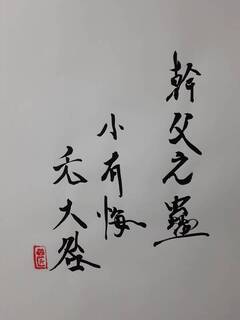 幹父之蠱
小有悔
无大咎